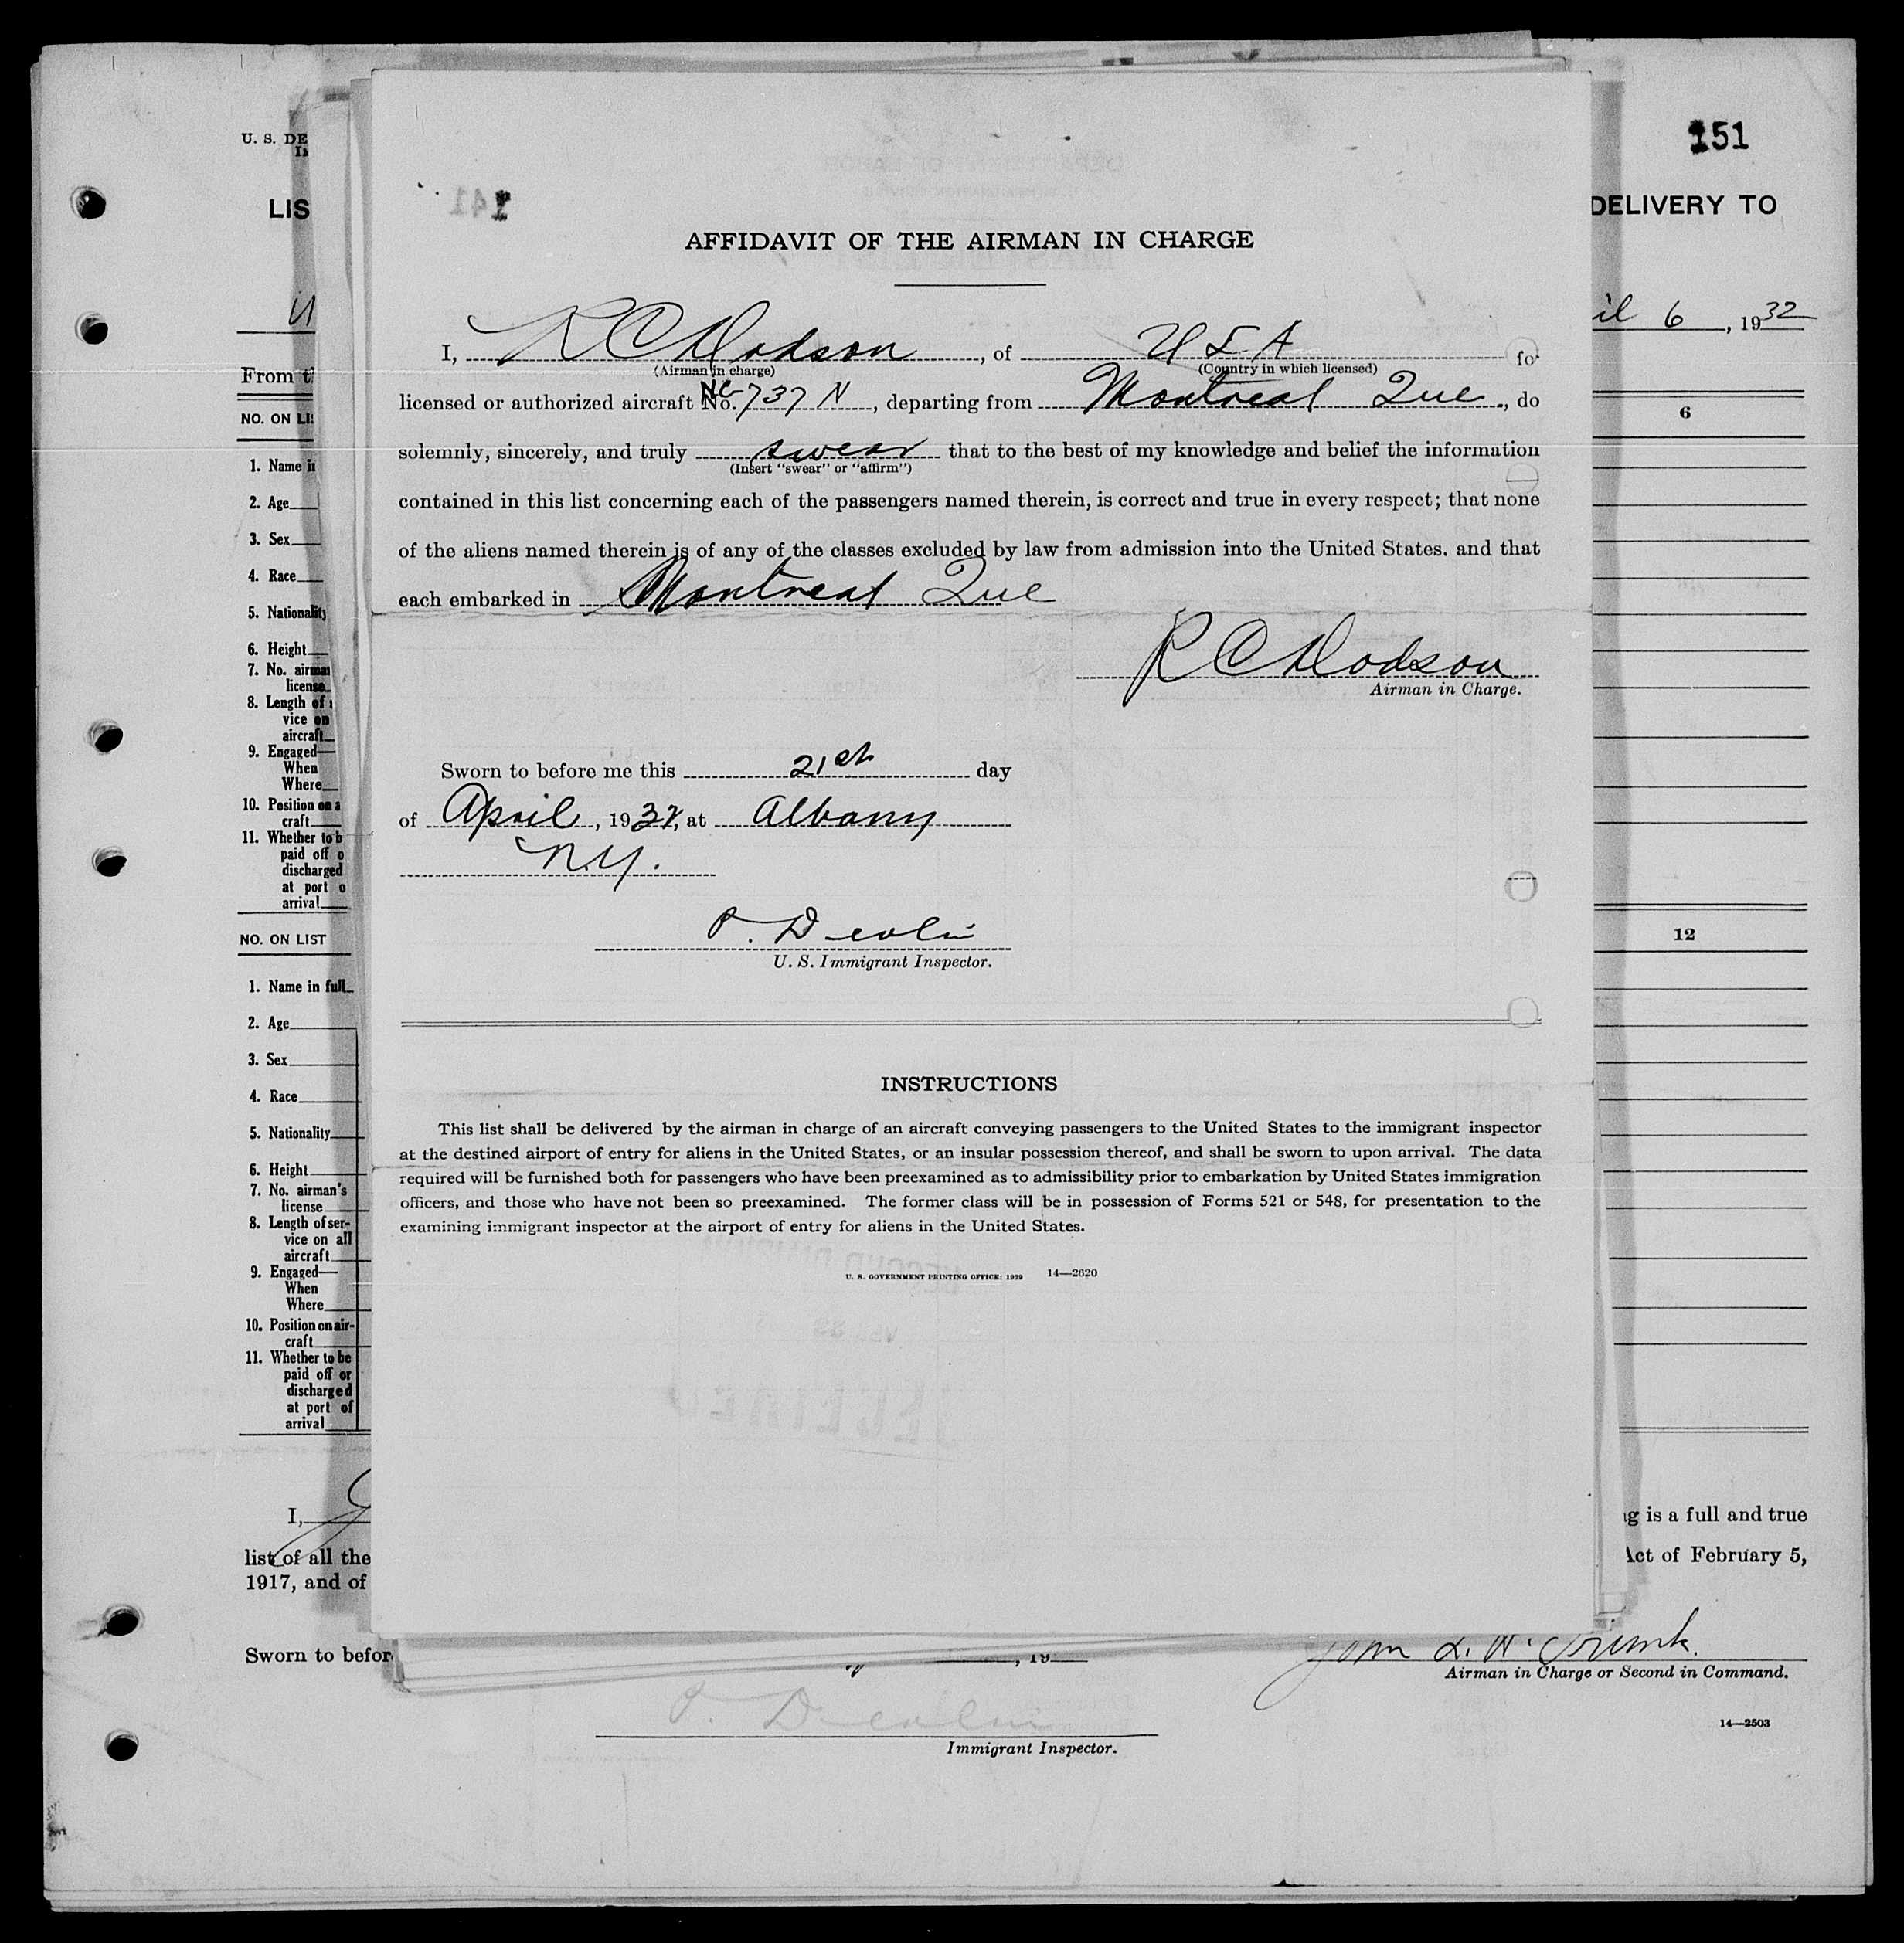 151
U. S. DE
LIS
DELIVERY TO
il 6, 1932
From t
NO. ON LIS
6
1. Name in
2. Age
3. Sex
4. Race
5. Nationality
6. Height
7. No. airman
license
8. Length of
vice on
aircraft
9. Engaged—
When
Where
10. Position on a
craft
11. Whether to b
paid off o
discharged
at port o
arrival
NO. ON LIST
12
1. Name in full
2. Age
3. Sex
4. Race
5. Nationality
6. Height
7. No. airman's
license
8. Length of ser-
vice on all
aircraft
9. Engaged—
When
Where
10. Position on air-
craft
11. Whether to be
paid off or
discharged
at port of
arrival
I,
ng is a full and true
list of all the
Act of February 5,
1917, and of
Sworn to befor
, 19
Airman in Charge or Second in Command.
14—2503
P. Devlin
Immigrant Inspector.
141
AFFIDAVIT OF THE AIRMAN IN CHARGE
I, R C Hodson, of U S A fo
(Airman in charge) (Country in which licensed)
licensed or authorized aircraft No. NC 737 N, departing from Montreal Que, do
solemnly, sincerely, and truly swear that to the best of my knowledge and belief the information
(Insert "swear" or "affirm")
contained in this list concerning each of the passengers named therein, is correct and true in every respect; that none
of the aliens named therein is of any of the classes excluded by law from admission into the United States, and that
each embarked in Montreal Que
R C Hodson
Airman in Charge.
Sworn to before me this 21st day
of April, 1932, at Albany
N.Y.
P. Devlin
U. S. Immigrant Inspector.
INSTRUCTIONS
This list shall be delivered by the airman in charge of an aircraft conveying passengers to the United States to the immigrant inspector
at the destined airport of entry for aliens in the United States, or an insular possession thereof, and shall be sworn to upon arrival. The data
required will be furnished both for passengers who have been preexamined as to admissibility prior to embarkation by United States immigration
officers, and those who have not been so preexamined. The former class will be in possession of Forms 521 or 548, for presentation to the
examining immigrant inspector at the airport of entry for aliens in the United States.
U. S. GOVERNMENT PRINTING OFFICE: 1929 14—2620